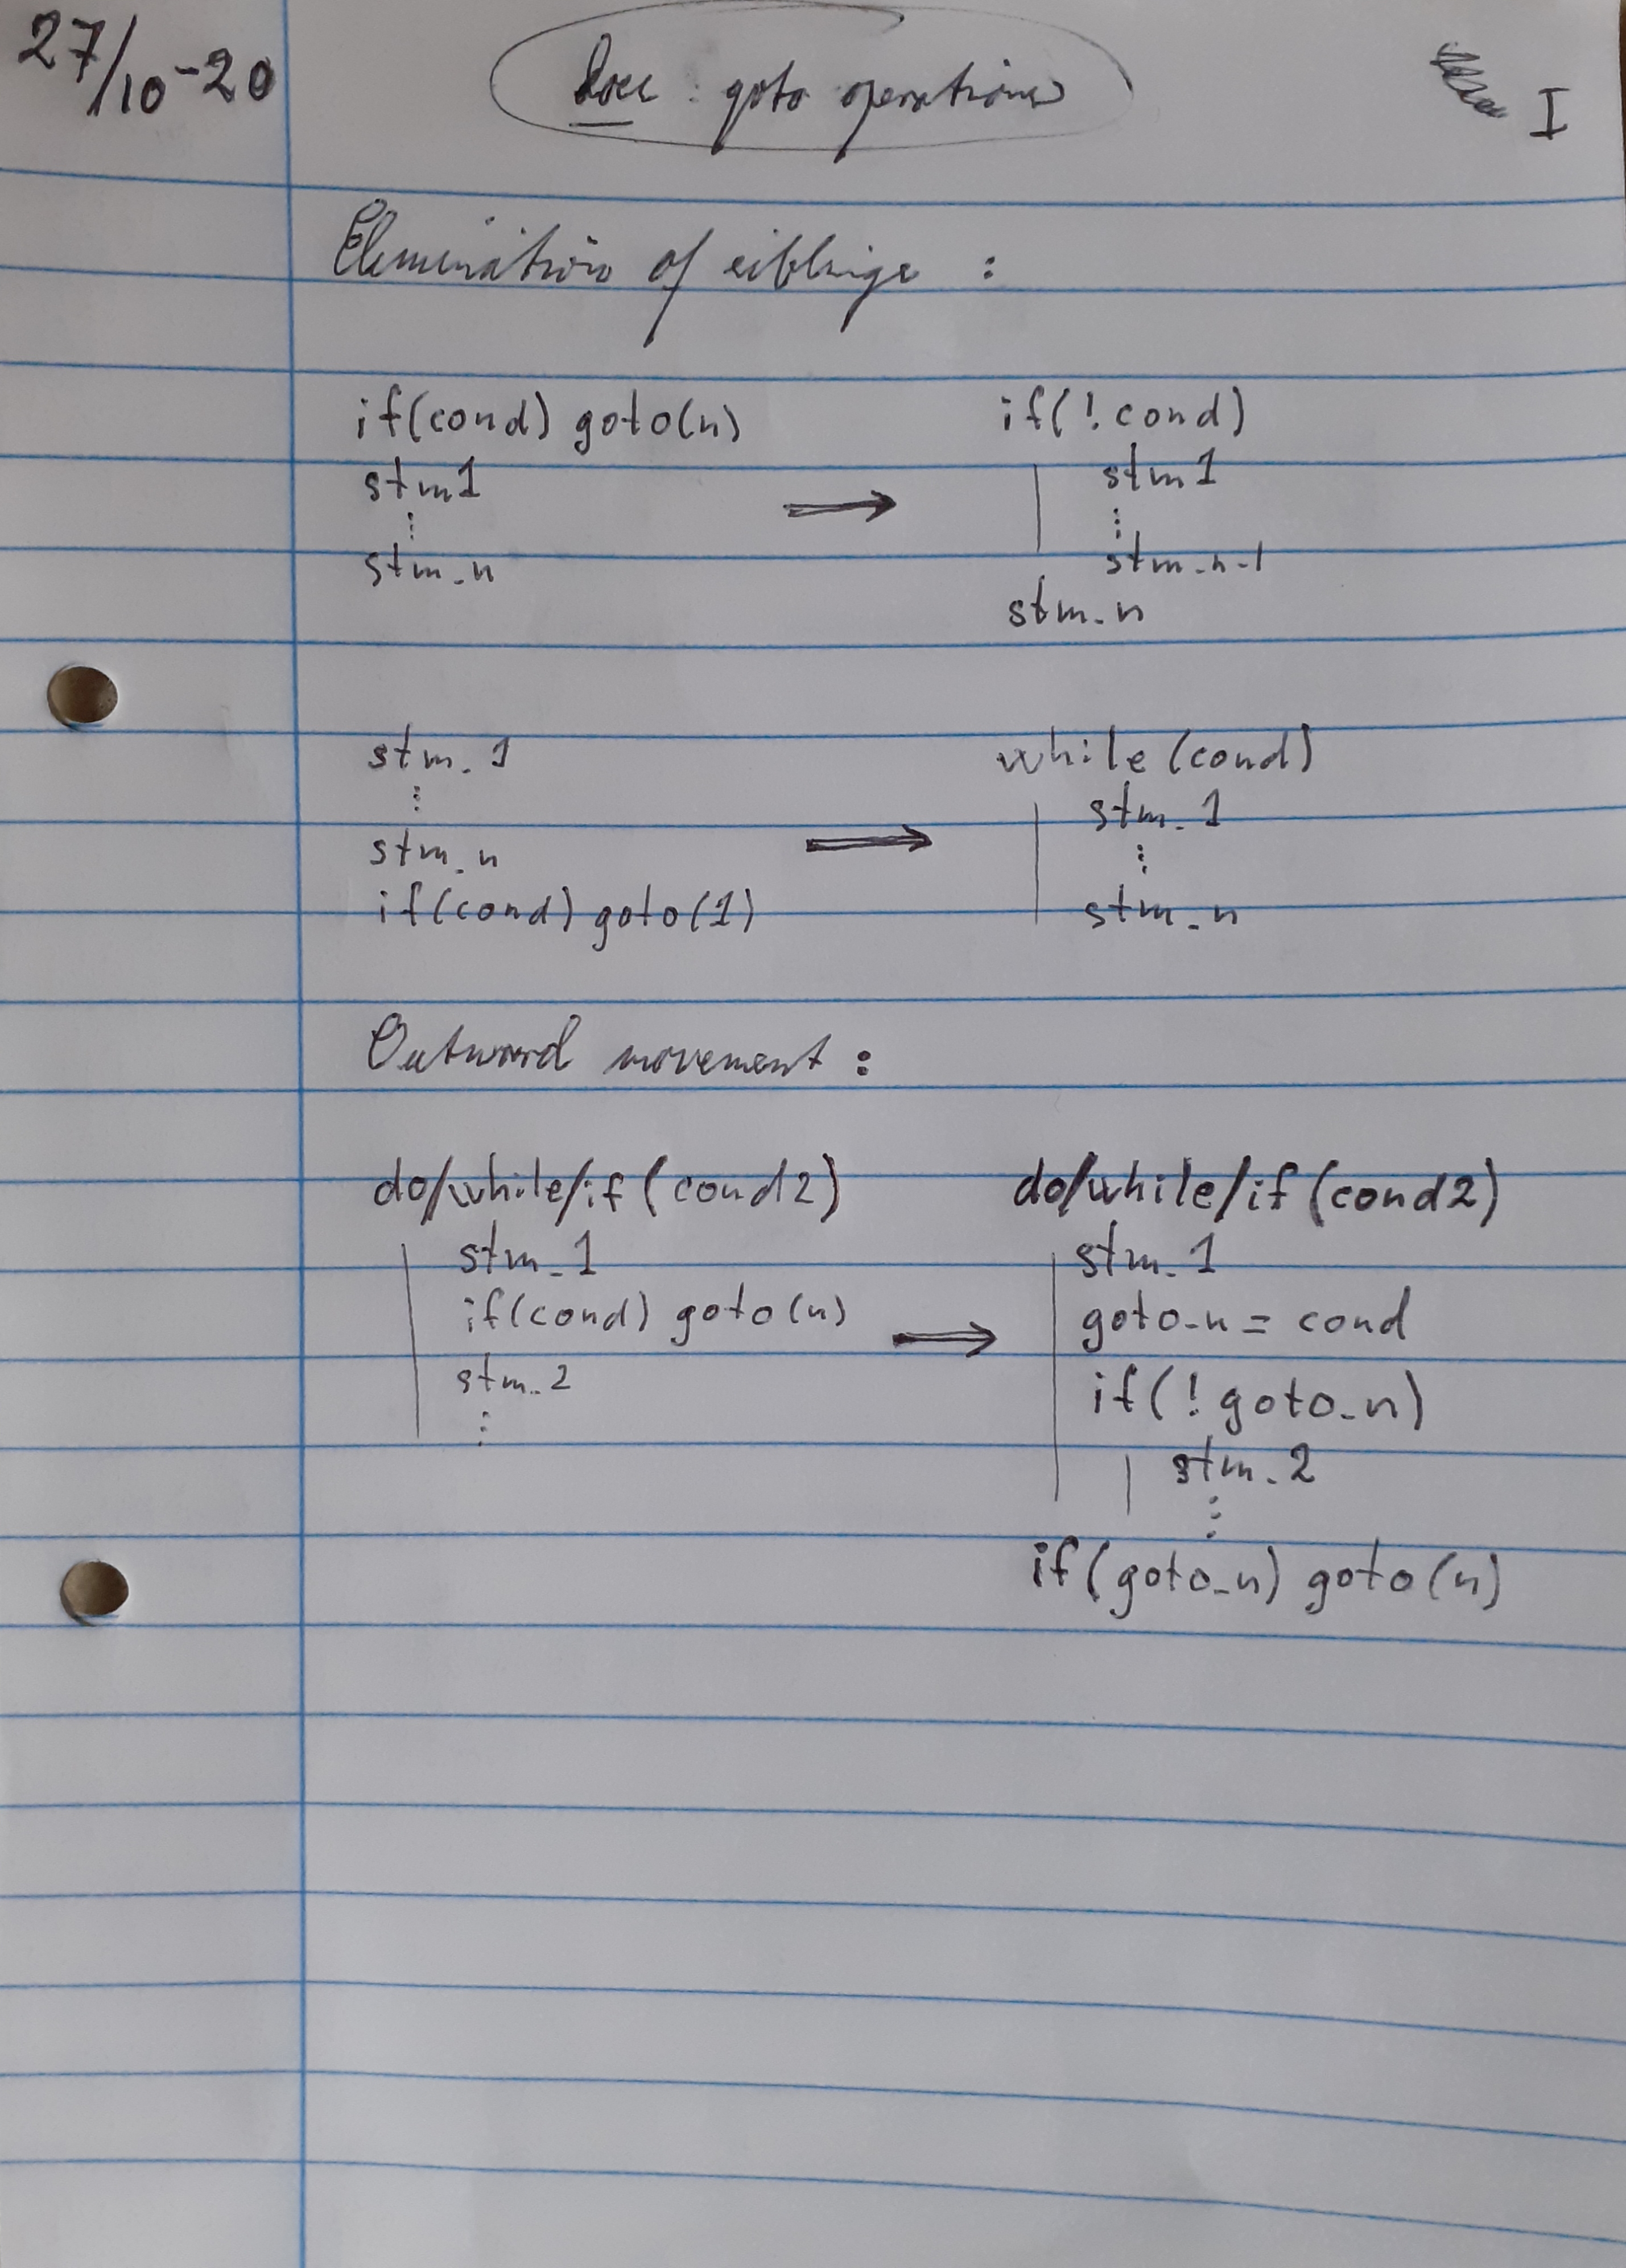 27/10-20
Doc : goto operations
I
Elimination of siblings :
if(cond) goto(n)
stm1
⋮
stm_n
⟹
if(!cond)
stm1
⋮
stm_n-1
stm_n
stm_1
⋮
stm_n
if(cond) goto(1)
⟹
while(cond)
stm_1
⋮
stm_n
Outward movement :
do/while/if(cond2)
stm_1
if(cond) goto(n)
stm_2
⋮
⟹
do/while/if(cond2)
stm_1
goto_n = cond
if(!goto_n)
stm_2
⋮
if(goto_n) goto(n)